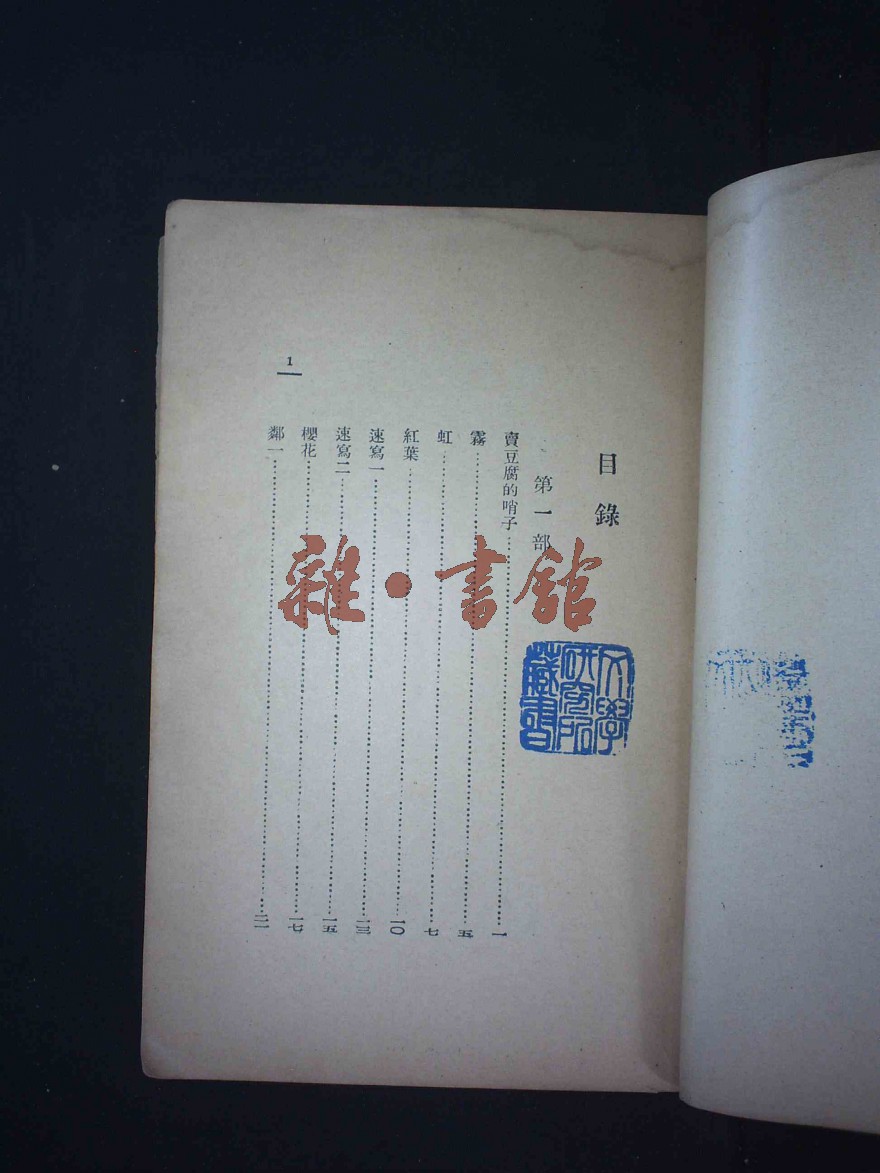 目錄
第一部
賣豆腐的哨子……一
霧……五
虹……七
紅葉……一〇
速寫一……一三
速寫二……一五
櫻花……一七
鄰一……二一
1
雜·書館
文學
研究所
藏書